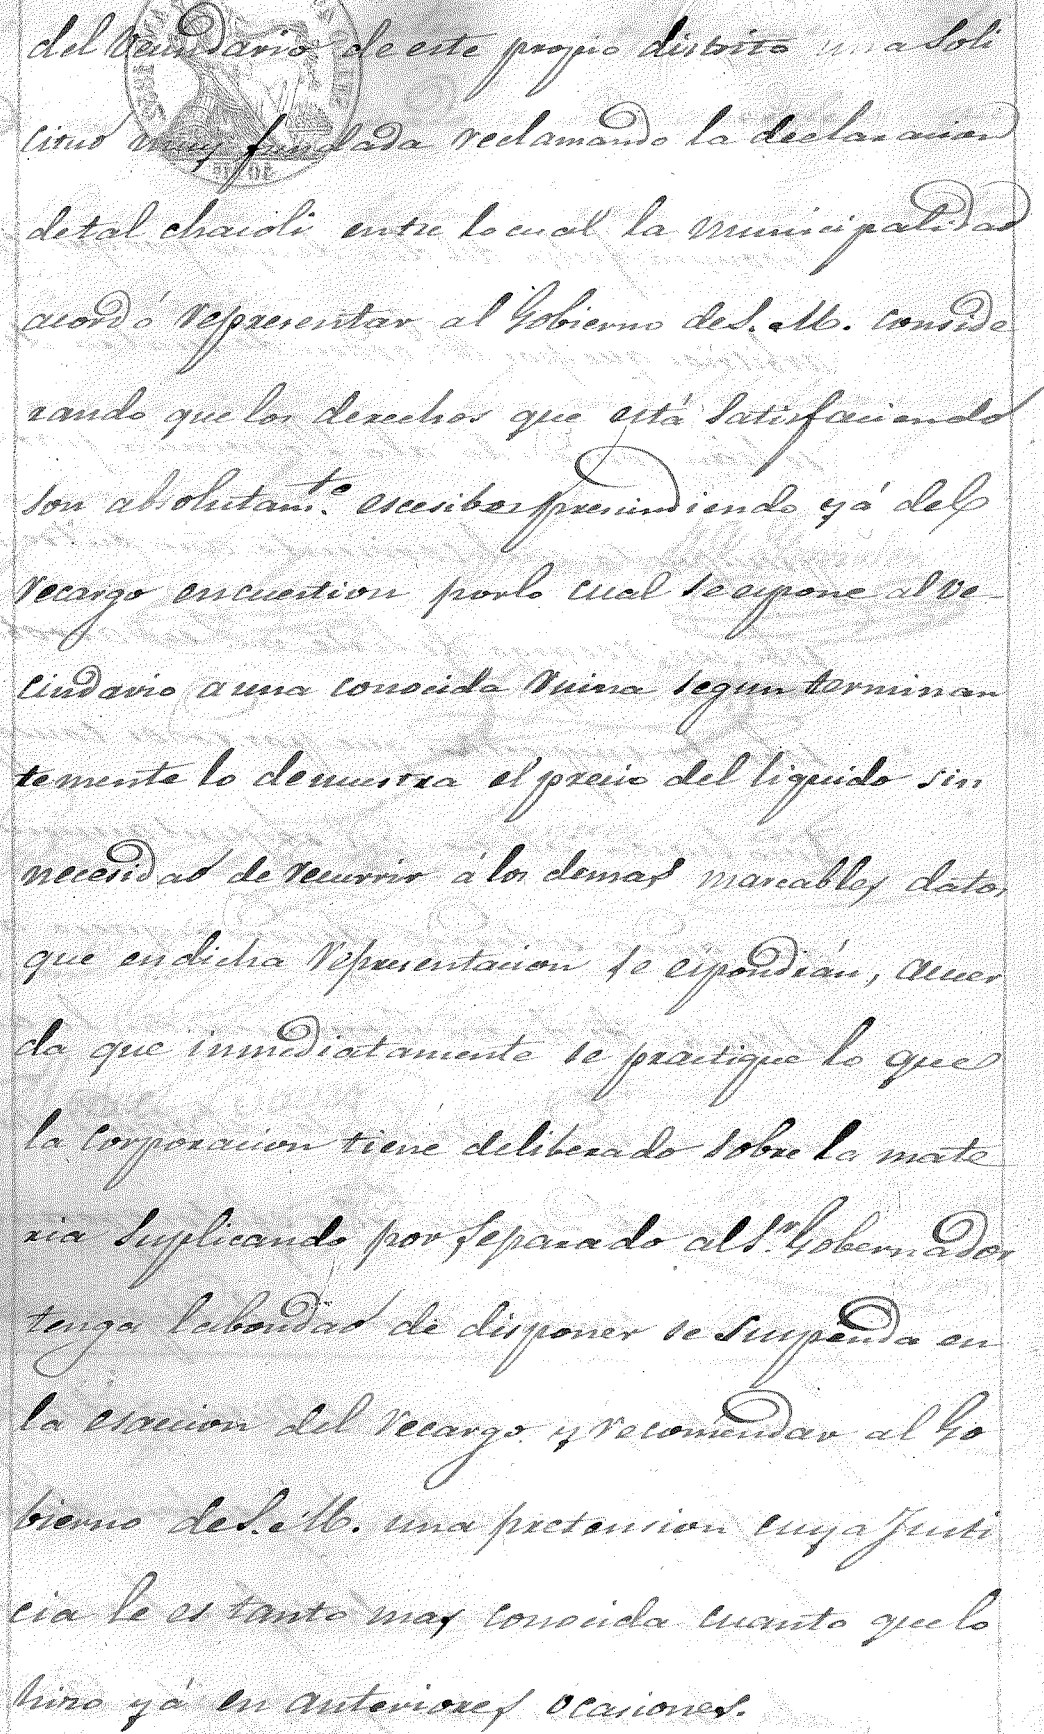 del Vecindario de este propio distrito una Soli
citud muy fundada reclamando la declaracion
detal chacoli entre locual la Municipalidad
acordó representar al Gobierno de S. M. conside
rando que los derechos que está satisfaciendo
son absolutamte. escesibos prescindiendo yá del
recargo encuestion porlo cual se espone al Ve
cindario a una conocida ruina segun terminan
temente lo demuestra el precio del liquido sin
necesidad de recurrir á los demas marcables datos
que endicha representacion se espondrán, acuer
da que inmediatamente se practique lo que
la corporacion tiene deliberado sobre la mate
ria Suplicando por separado al Sr. Gobernador
tenga labondad de disponer se suspenda en
la esaccion del recargo y recomendar al Go
bierno de S. M. una pretension cuya Justi
cia le es tanto mas conocida cuanto que lo
hizo yá en anteriores ocasiones.